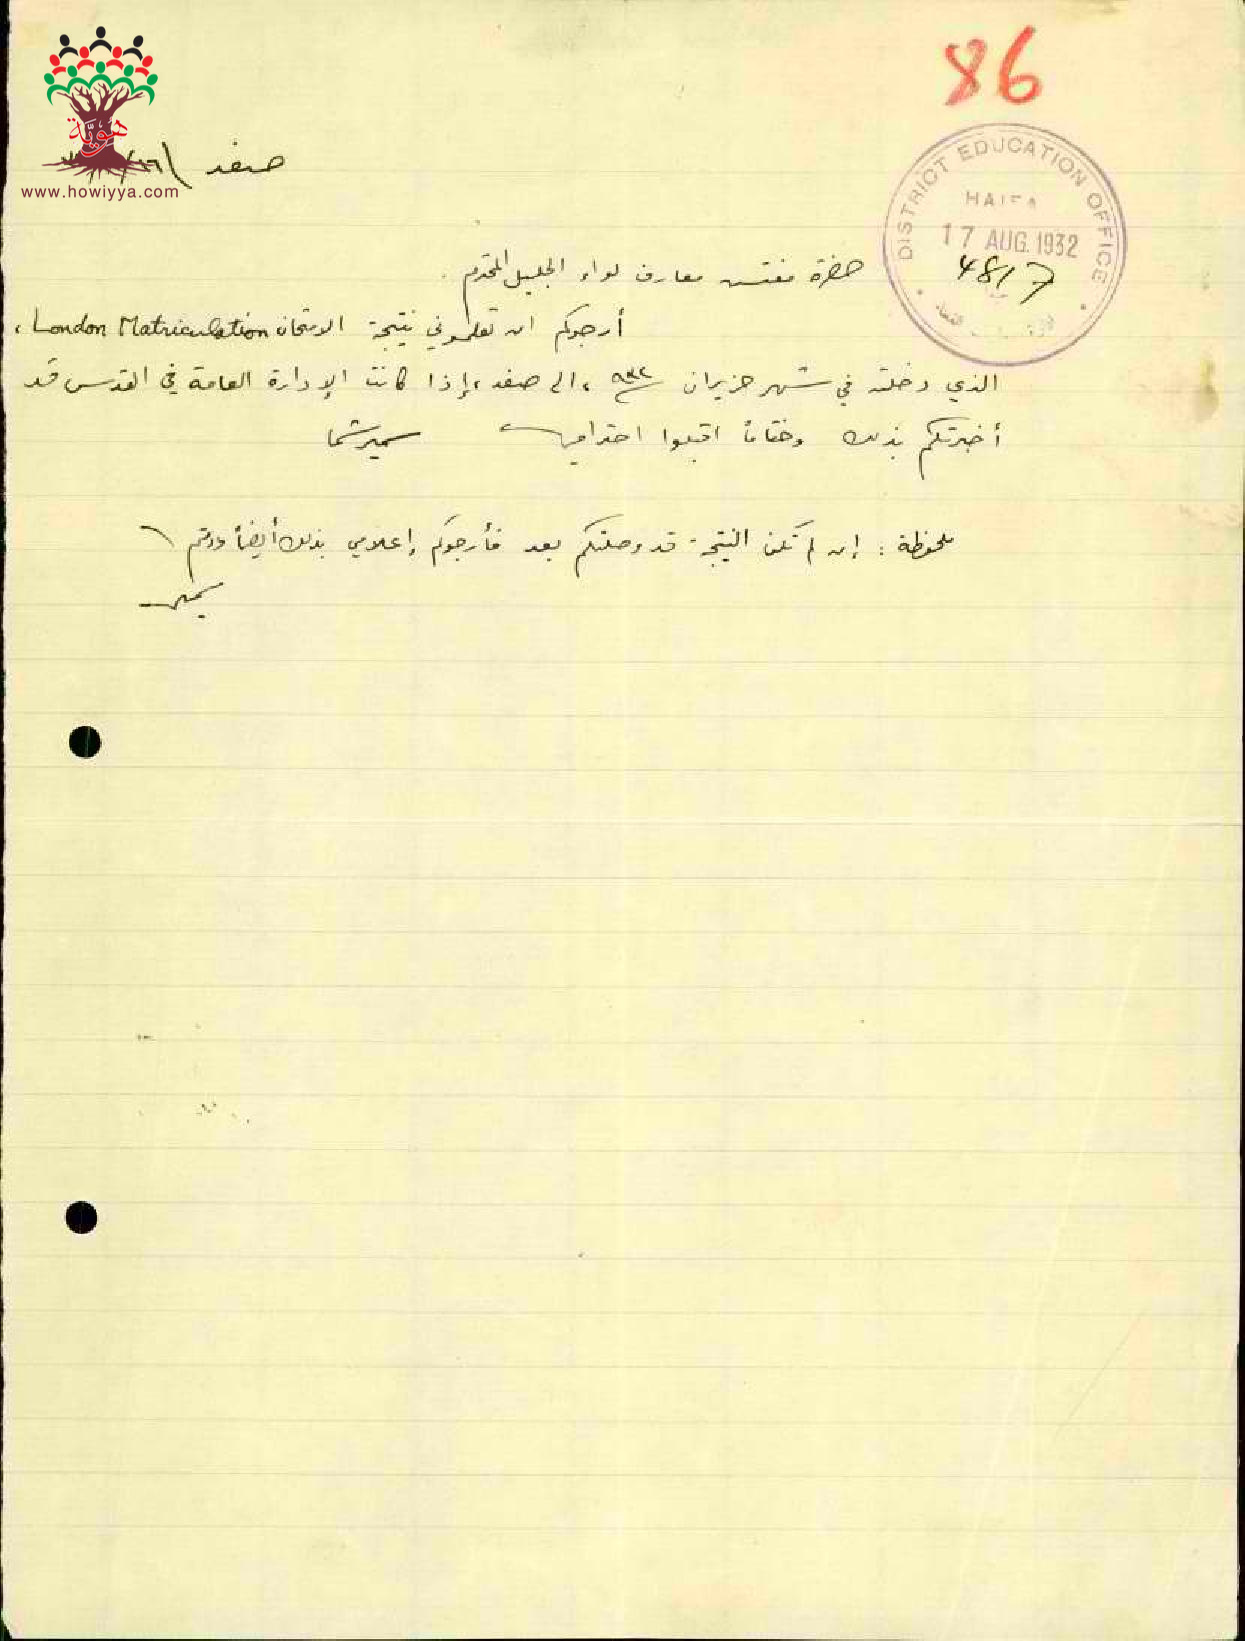 86
هوية
www.howiyya.com
صفد
DISTRICT EDUCATION OFFICE
HAIFA
17 AUG. 1932
4817
حضرة مفتش معارف لواء الجليل المحترم
أرجوكم ان تعلموني نتيجة الامتحان London Matriculation،
الذي دخلته في شهر حزيران ٩٣٢، الى صفد، إذا كانت الإدارة العامة في القدس قد
أخبرتكم بذلك وختاماً اقبلوا احترامي سمير شما
ملحوظة : إن لم تكن النتيجة قد وصلتكم بعد فأرجوكم إعلامي بذلك أيضاً ودمتم
سمير